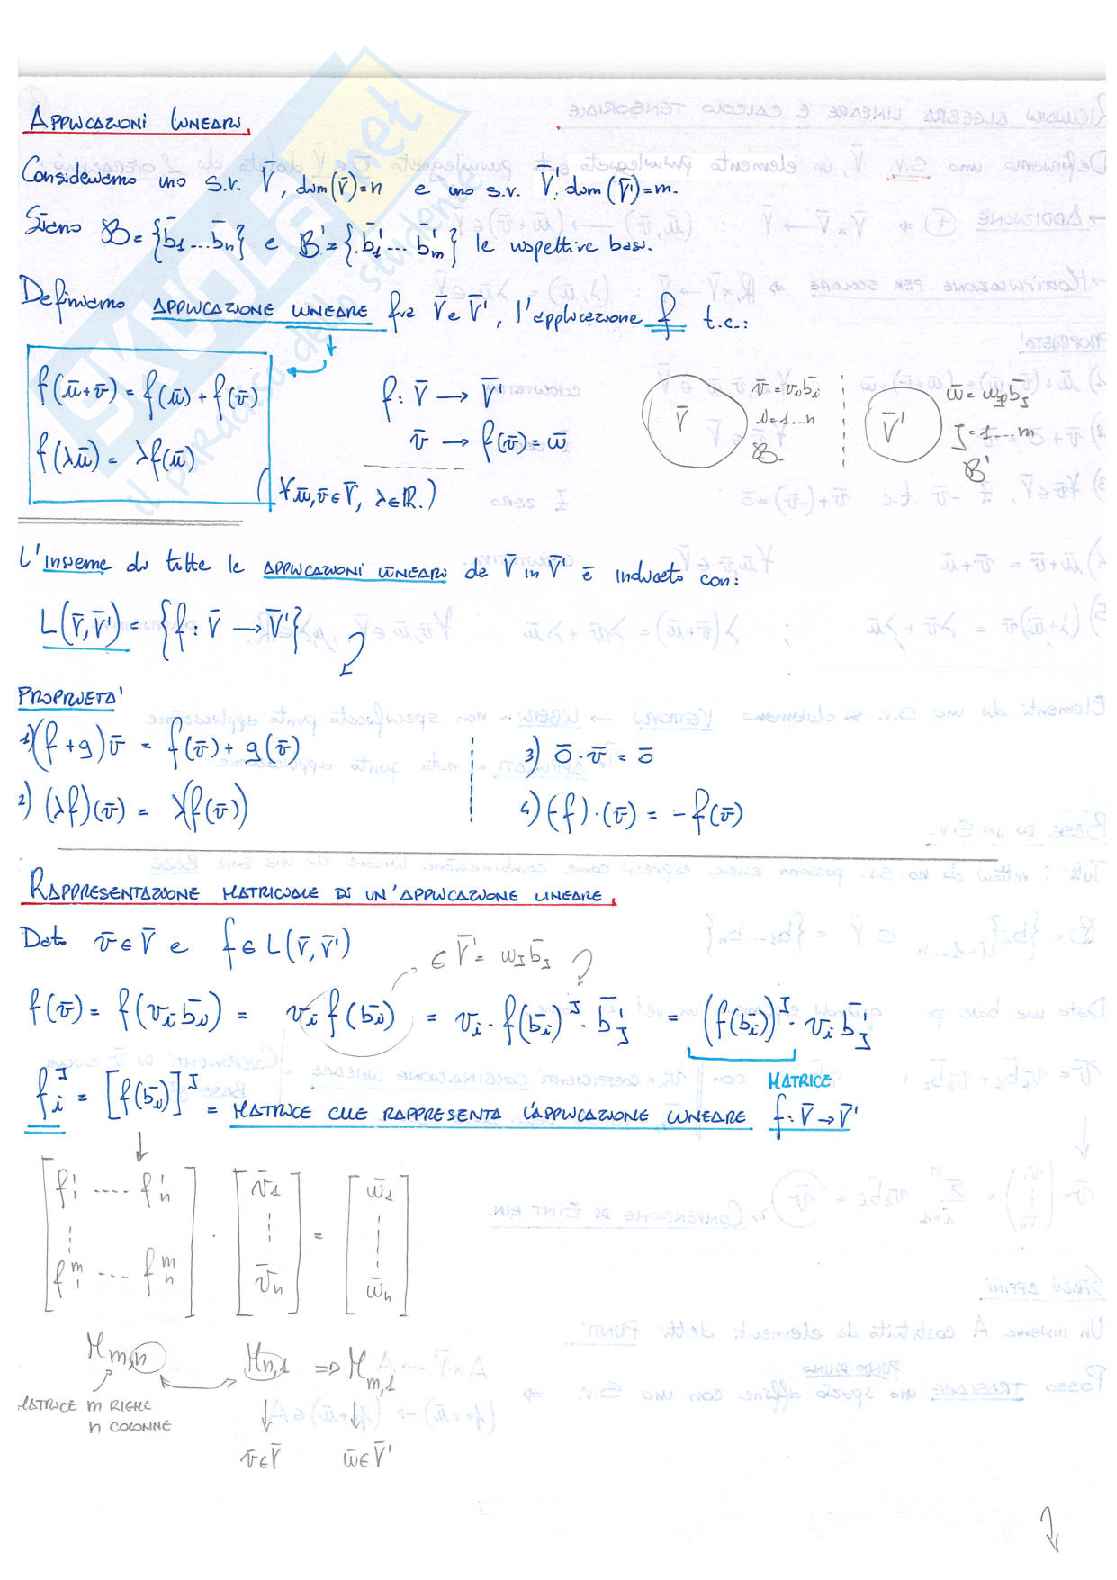 APPLICAZIONI LINEARI
Consideriamo uno s.v. V̄, dim(V̄)=n e uno s.v. V̄', dim(V̄')=m.
Siano B={b̄₁...b̄ₙ} e B'={b̄'₁...b̄'ₘ} le rispettive basi.
Definiamo APPLICAZIONE LINEARE fra V̄ e V̄', l'applicazione f t.c.:
f(ū+v̄) = f(ū) + f(v̄)
f(λū) = λf(ū)
(∀ū,v̄∈V̄, λ∈ℝ.)
f: V̄ → V̄'
v̄ → f(v̄) = w̄
V̄
v̄ = vᵢb̄ᵢ
i=1...n
B
V̄'
w̄ = w_J b̄_J
J=1...m
B'
L'insieme di tutte le APPLICAZIONI LINEARI da V̄ in V̄' è indicato con:
L(V̄,V̄') = {f: V̄ → V̄'}
PROPRIETA'
1) (f+g)v̄ = f(v̄) + g(v̄)
2) (λf)(v̄) = λ(f(v̄))
3) ō·v̄ = ō
4) (-f)·(v̄) = -f(v̄)
RAPPRESENTAZIONE MATRICIALE DI UN'APPLICAZIONE LINEARE
Dato v̄∈V̄ e f∈L(V̄,V̄')
∈ V̄' = w_J b̄_J ?
f(v̄) = f(vᵢb̄ᵢ) = vᵢ f(b̄ᵢ) = vᵢ · f(b̄ᵢ)^J · b̄'_J = (f(b̄ᵢ))^J · vᵢ b̄'_J
MATRICE
fᵢ^J = [f(b̄ᵢ)]^J = MATRICE CHE RAPPRESENTA L'APPLICAZIONE LINEARE f: V̄→V̄'
[f¹₁ .... f¹ₙ ⋮ fᵐ₁ ... fᵐₙ] · [v̄₁ ⋮ v̄ₙ] = [w̄₁ ⋮ w̄ₙ]
M_{m,n} M_{n,1} => M_{m,1}
MATRICE m RIGHE
n COLONNE
v̄∈V̄ w̄∈V̄'
SKUOLA.net
il paradiso dello studente